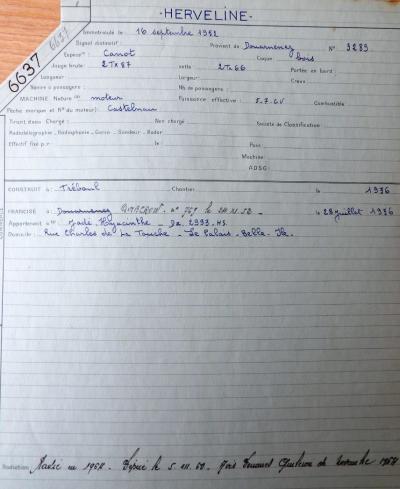 - HERVELINE -
6637
6637
Immatriculé le : 16 septembre 1952
Signal distinctif : Provient de Douarnenez N° 3289
Espèce : Canot Coque bois
Jauge brute : 2Tx87 nette 2Tx66 Portée en lourd
Longueur Largeur Creux
Nbre de passagers :
MACHINE Nature moteur Puissance effective : 5.7.CV Combustible
(marque et N° du moteur) Castelnau
Tirant d'eau Chargé : Non chargé : Société de Classification :
Radiotélégraphie - Radiophonie - Gonio - Sondeur - Radar
Effectif fixé par le : Pont :
Machine :
ADSG :
CONSTRUIT à : Tréboul Chantier le 1936
FRANCISÉ à : Douarnenez QUIBERON . n° 769 le 24.11.52 - le 28 juillet 1936
Appartenant à Madé Hyacinthe - Dz. 2993.HS.
Domicile : Rue Charles de La Touche - Le Palais - Belle-Ile.
Radiation : Radié en 1968. le 5.111.68.